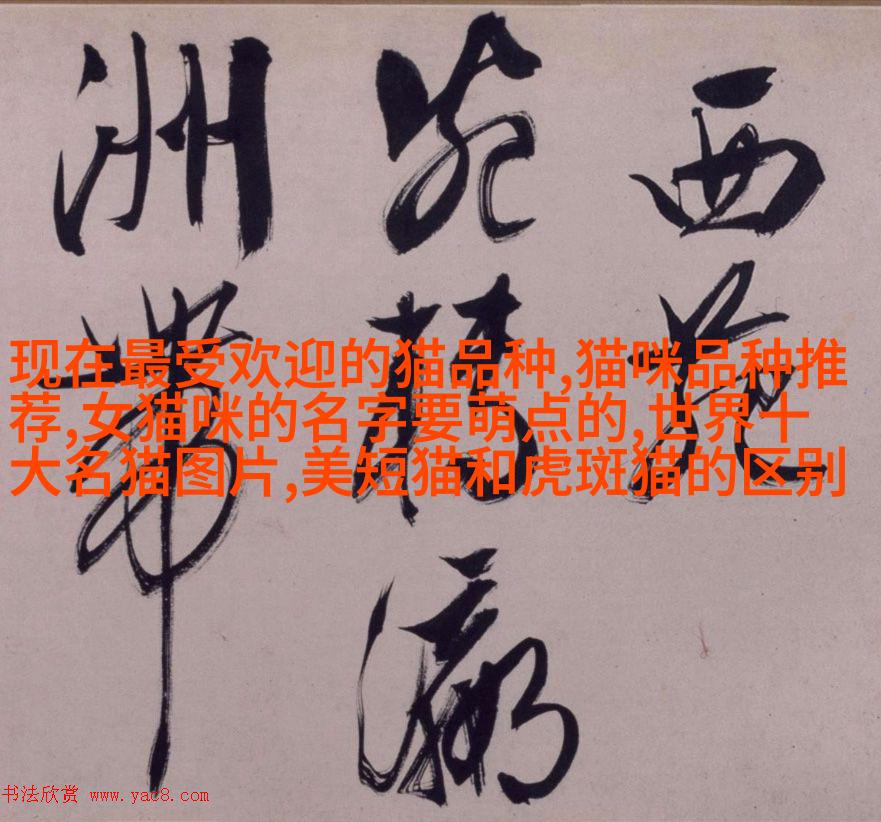 现在最受欢迎的猫品种,猫咪品种推
荐,女猫咪的名字要萌点的,世界十
大名猫图片,美短猫和虎斑猫的区别
西苑
瀛
洲帶
书法欣赏 www.yac8.com